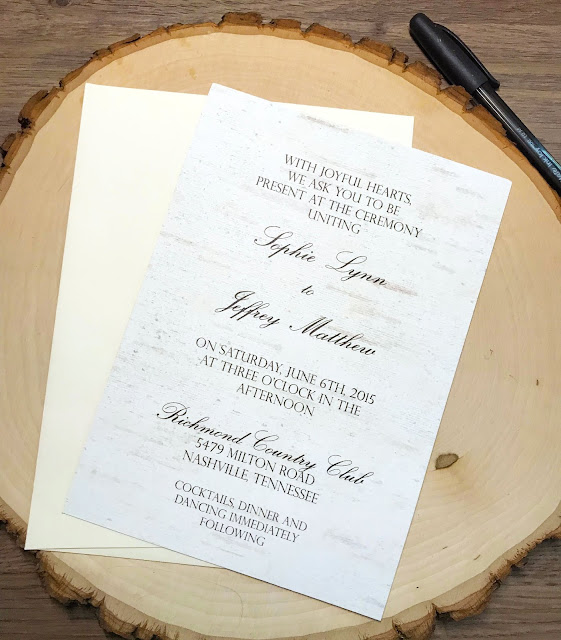 WITH JOYFUL HEARTS,
WE ASK YOU TO BE
PRESENT AT THE CEREMONY
UNITING
Sophie Lynn
to
Jeffrey Matthew
ON SATURDAY, JUNE 6TH, 2015
AT THREE O'CLOCK IN THE
AFTERNOON
Richmond Country Club
5479 MILTON ROAD
NASHVILLE, TENNESSEE
COCKTAILS, DINNER AND
DANCING IMMEDIATELY
FOLLOWING